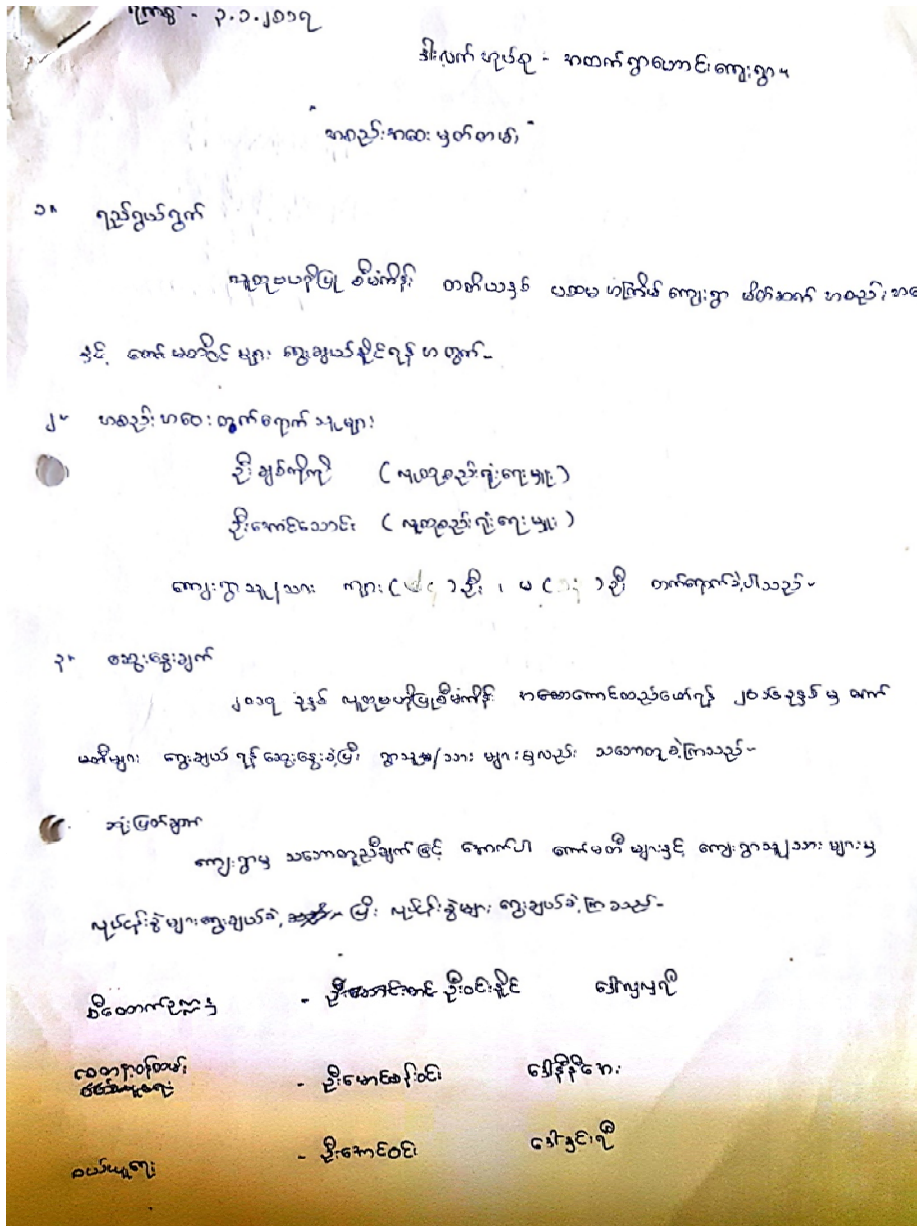 ရက်စွဲ - ၃.၁.၂၀၁၇
ဒါးလက် ဟုပ်စု - အထက်ရွာဟောင်းကျေးရွာ။
"အစည်းအဝေး မှတ်တမ်း"
၁။ ရည်ရွယ်ချက်
လူထုဗဟိုပြု စီမံကိန်း တတိယနှစ် ပထမအကြိမ် ကျေးရွာ မိတ်ဆက် အစည်းအဝေး
နှင့် ကော်မတီဝင်များ ရွေးချယ်နိုင်ရန်အတွက်-
၂။ အစည်းအဝေးတွက်ရောက်သူများ
ဦးချစ်ကိုကို (လူထုစည်းရုံးရေးမှူး)
ဦးအောင်သောင်း (လူထုစည်းရုံးရေးမှူး)
ကျေးရွာသူ/သား ကျား( )ဦး ၊ မ ( )ဦး တက်ရောက်ခဲ့ပါသည်။
၃။ ဆွေးနွေးချက်
၂၀၁၇ ခုနှစ် လူထုဗဟိုပြုစီမံကိန်း အကောင်အထည်ဖော်ရန် ၂၀၁၆ခုနှစ်မှ ကော်
မတီများ ရွေးချယ်ရန် ဆွေးနွေးခဲ့ပြီး ရွာသူ/သား များမှလည်း သဘောတူခဲ့ကြသည်။
ဆုံးဖြတ်ချက်
ကျေးရွာမှ သဘောတူညီချက်ဖြင့် အောက်ပါ ကော်မတီများနှင့် ကျေးရွာသူ/သားများမှ
လုပ်ငန်းခွဲများရွေးချယ်ခဲ့ ပြီး လုပ်ငန်းခွဲများ ရွေးချယ်ခဲ့ကြသည်-
စီထောက်ဥက္ကဌ - ဦးဝင်းနိုင် ဒေါ်လှလှရီ
စေတနာ့ဝန်ထမ်း - ဦးမောင်စန်းဝင်း ဒေါ်နီနီအေး
ဝယ်ယူရေး - ဦးအောင်ဝင်း ဒေါ်နှင်းရီ